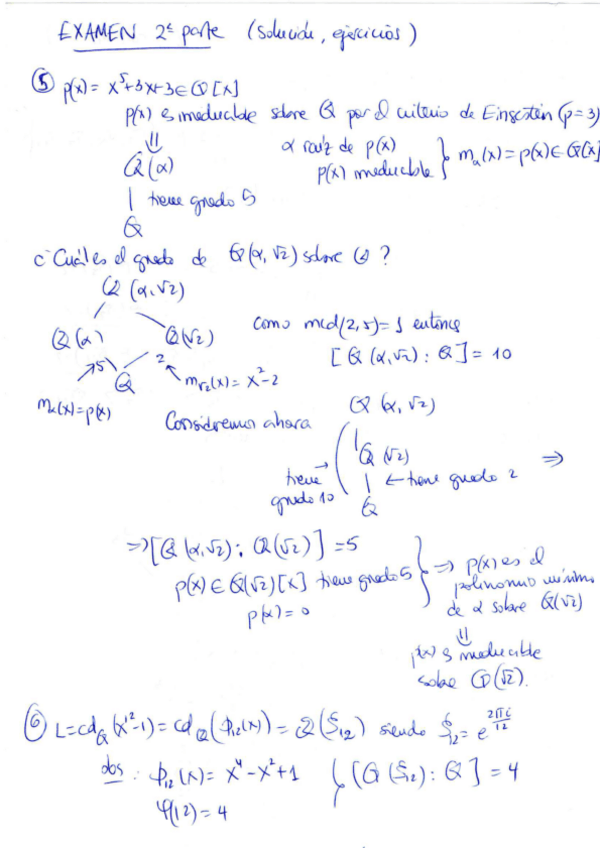 EXAMEN 2ª parte (solución, ejercicios)
⑤ p(x) = x⁵+3x+3 ∈ Q[x]
p(x) es irreducible sobre Q por el criterio de Einsestein (p=3)
⇓
Q(α)
| tiene grado 5
Q
α raíz de p(x)
p(x) irreducible } m_α(x) = p(x) ∈ Q[x]
¿Cuál es el grado de Q(α,√2) sobre Q?
Q(α,√2)
Q(α) Q(√2)
5 2
Q
m_α(x)=p(x)
m_√2(x) = x²-2
Como mcd(2,5)=1 entonces
[Q(α,√2):Q] = 10
Consideremos ahora
Q(α,√2)
| Q(√2)
tiene → | ← tiene grado 2 ⇒
grado 10
Q
⇒ [Q(α,√2):Q(√2)] = 5
p(x) ∈ Q(√2)[x] tiene grado 5
p(α) = 0
} ⇒ p(x) es el
polinomio mínimo
de α sobre Q(√2)
⇓
p(x) es irreducible
sobre Q(√2).
⑥ L = cd_Q(x¹²-1) = cd_Q(ϕ₁₂(x)) = Q(ξ₁₂) siendo ξ₁₂ = e^(2πi/12)
obs : ϕ₁₂(x) = x⁴-x²+1 } [Q(ξ₁₂):Q] = 4
φ(12) = 4